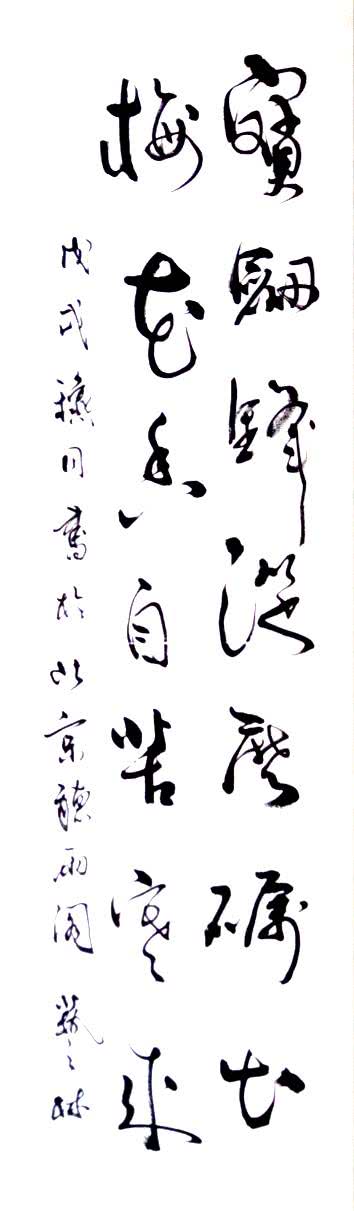 寶劍鋒從磨礪出
梅花香自苦寒來
戊戌穐月書於北京聽雨閣